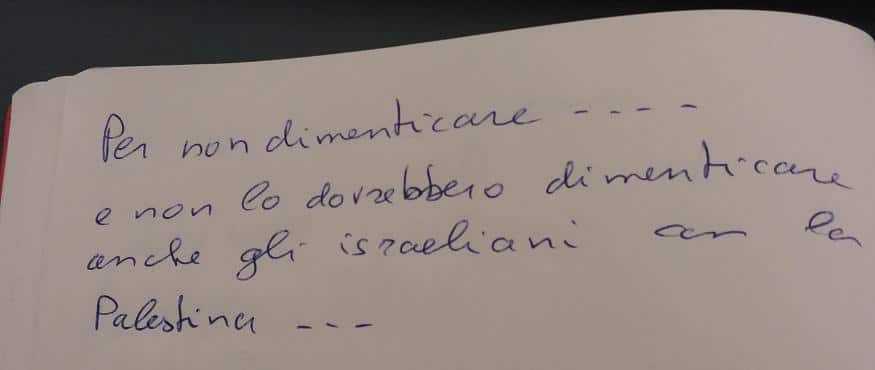 Per non dimenticare - - - -
e non lo dovrebbero dimenticare
anche gli israeliani con la
Palestina - - -